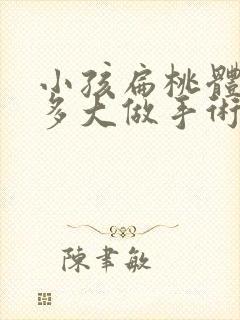 小孩扁桃體
多大做手術
陳聿敏